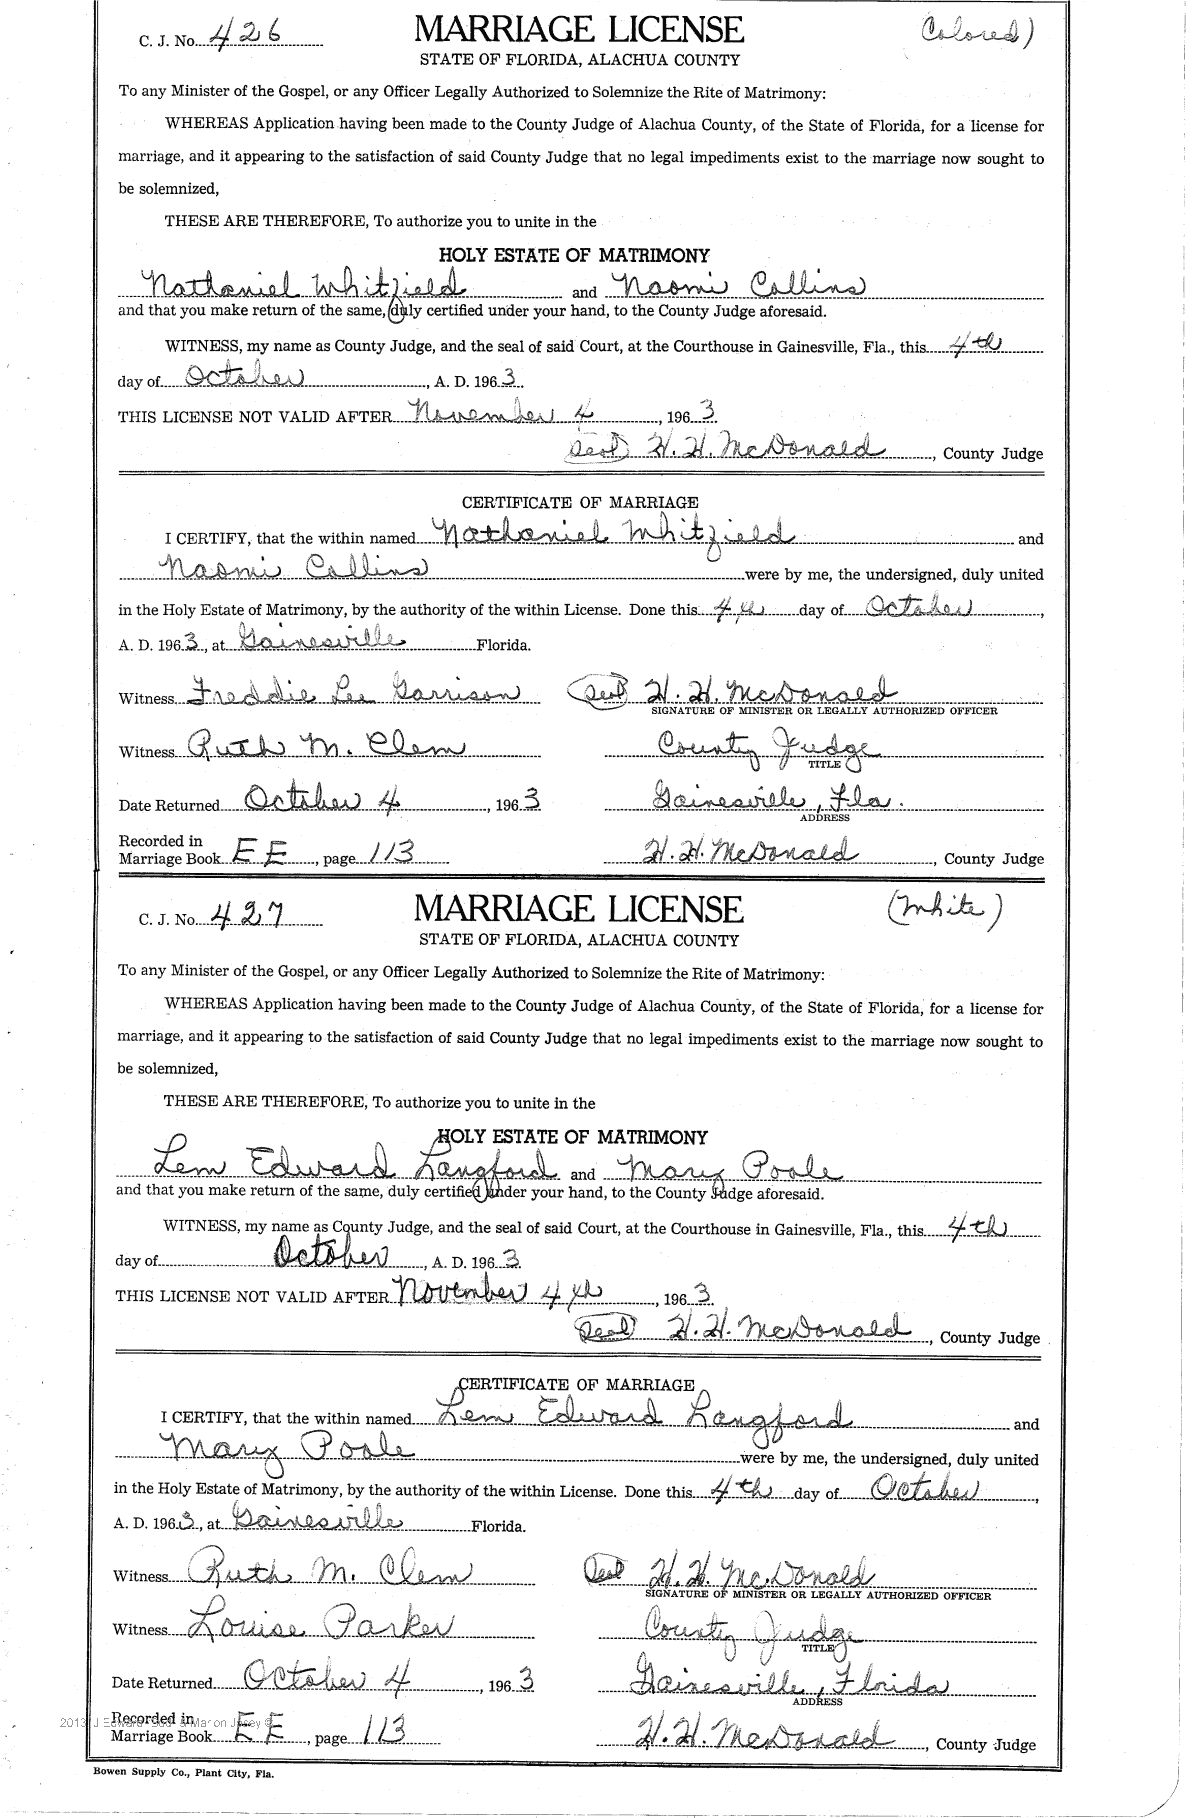 C. J. No. 426 MARRIAGE LICENSE (Colored)
STATE OF FLORIDA, ALACHUA COUNTY
To any Minister of the Gospel, or any Officer Legally Authorized to Solemnize the Rite of Matrimony:
WHEREAS Application having been made to the County Judge of Alachua County, of the State of Florida, for a license for
marriage, and it appearing to the satisfaction of said County Judge that no legal impediments exist to the marriage now sought to
be solemnized,
THESE ARE THEREFORE, To authorize you to unite in the
HOLY ESTATE OF MATRIMONY
Nathaniel Whitfield and Naomi Collins
and that you make return of the same, duly certified under your hand, to the County Judge aforesaid.
WITNESS, my name as County Judge, and the seal of said Court, at the Courthouse in Gainesville, Fla., this 4th
day of October, A. D. 1963.
THIS LICENSE NOT VALID AFTER November 4, 1963
Seal H. H. McDonald, County Judge
CERTIFICATE OF MARRIAGE
I CERTIFY, that the within named Nathaniel Whitfield and
Naomi Collins were by me, the undersigned, duly united
in the Holy Estate of Matrimony, by the authority of the within License. Done this 4th day of October,
A. D. 1963, at Gainesville Florida.
Witness Freddie Lee Garrison Seal H. H. McDonald
SIGNATURE OF MINISTER OR LEGALLY AUTHORIZED OFFICER
Witness Ruth M. Clem County Judge
TITLE
Date Returned October 4, 1963 Gainesville, Fla.
ADDRESS
Recorded in
Marriage Book EE, page 113 H. H. McDonald, County Judge
C. J. No. 427 MARRIAGE LICENSE (White)
STATE OF FLORIDA, ALACHUA COUNTY
To any Minister of the Gospel, or any Officer Legally Authorized to Solemnize the Rite of Matrimony:
WHEREAS Application having been made to the County Judge of Alachua County, of the State of Florida, for a license for
marriage, and it appearing to the satisfaction of said County Judge that no legal impediments exist to the marriage now sought to
be solemnized,
THESE ARE THEREFORE, To authorize you to unite in the
HOLY ESTATE OF MATRIMONY
Lem Edward Langford and Mary Poole
and that you make return of the same, duly certified under your hand, to the County Judge aforesaid.
WITNESS, my name as County Judge, and the seal of said Court, at the Courthouse in Gainesville, Fla., this 4th
day of October, A. D. 1963.
THIS LICENSE NOT VALID AFTER November 4th, 1963.
Seal H. H. McDonald, County Judge
CERTIFICATE OF MARRIAGE
I CERTIFY, that the within named Lem Edward Langford and
Mary Poole were by me, the undersigned, duly united
in the Holy Estate of Matrimony, by the authority of the within License. Done this 4th day of October,
A. D. 1963, at Gainesville Florida.
Witness Ruth M. Clem Seal H. H. McDonald
SIGNATURE OF MINISTER OR LEGALLY AUTHORIZED OFFICER
Witness Louise Parker County Judge
TITLE
Date Returned October 4, 1963 Gainesville, Florida
ADDRESS
Recorded in
2013 J
Marriage Book EE, page 113 H. H. McDonald, County Judge
Bowen Supply Co., Plant City, Fla.